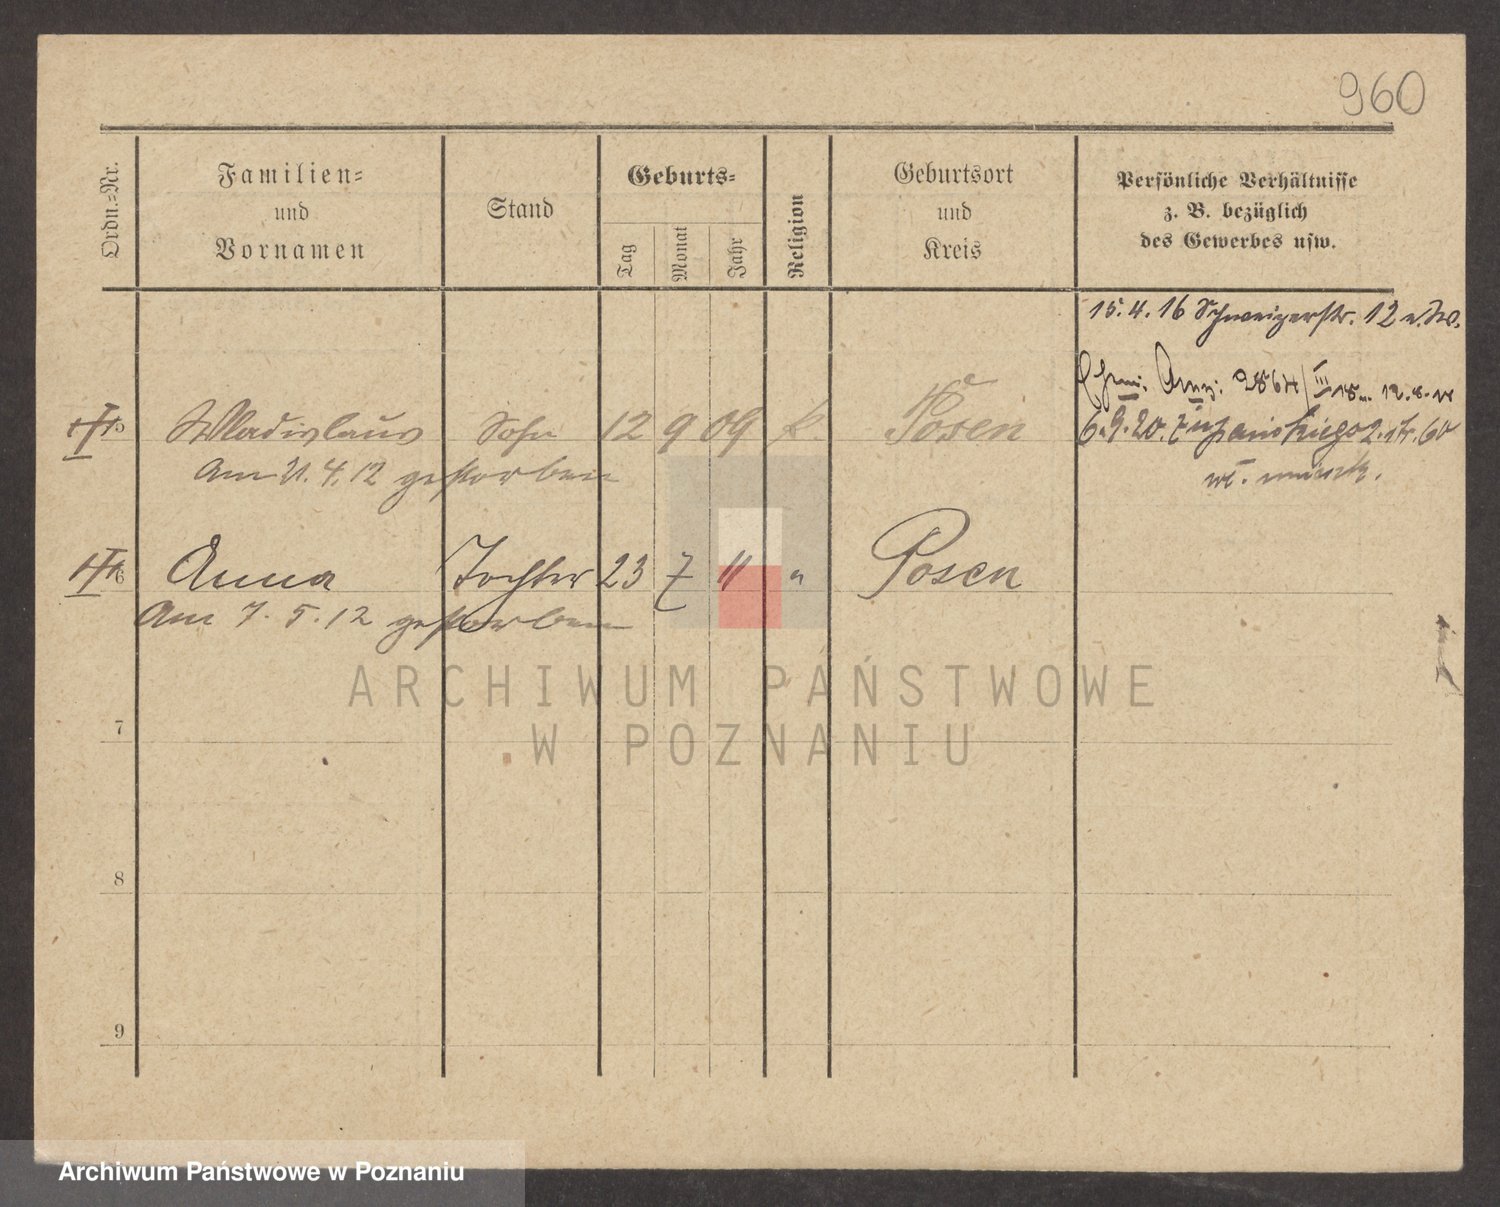 960
Ordn.=Nr.
Familien=
und
Vornamen
Stand
Geburts=
Tag
Monat
Jahr
Religion
Geburtsort
und
Kreis
Persönliche Verhältnisse
z. B. bezüglich
des Gewerbes usw.
15. 4. 16 Schweizerstr. 12
5 Wladislaus Sohn 12 9 09 k. Posen
6. 9. 20. Żupańskiego 2.
Am 21. 4. 12 gestorben
6 Anna Tochter 23 7 11 " Posen
Am 7. 5. 12 gestorben
7
8
9
ARCHIWUM PAŃSTWOWE
W POZNANIU
Archiwum Państwowe w Poznaniu